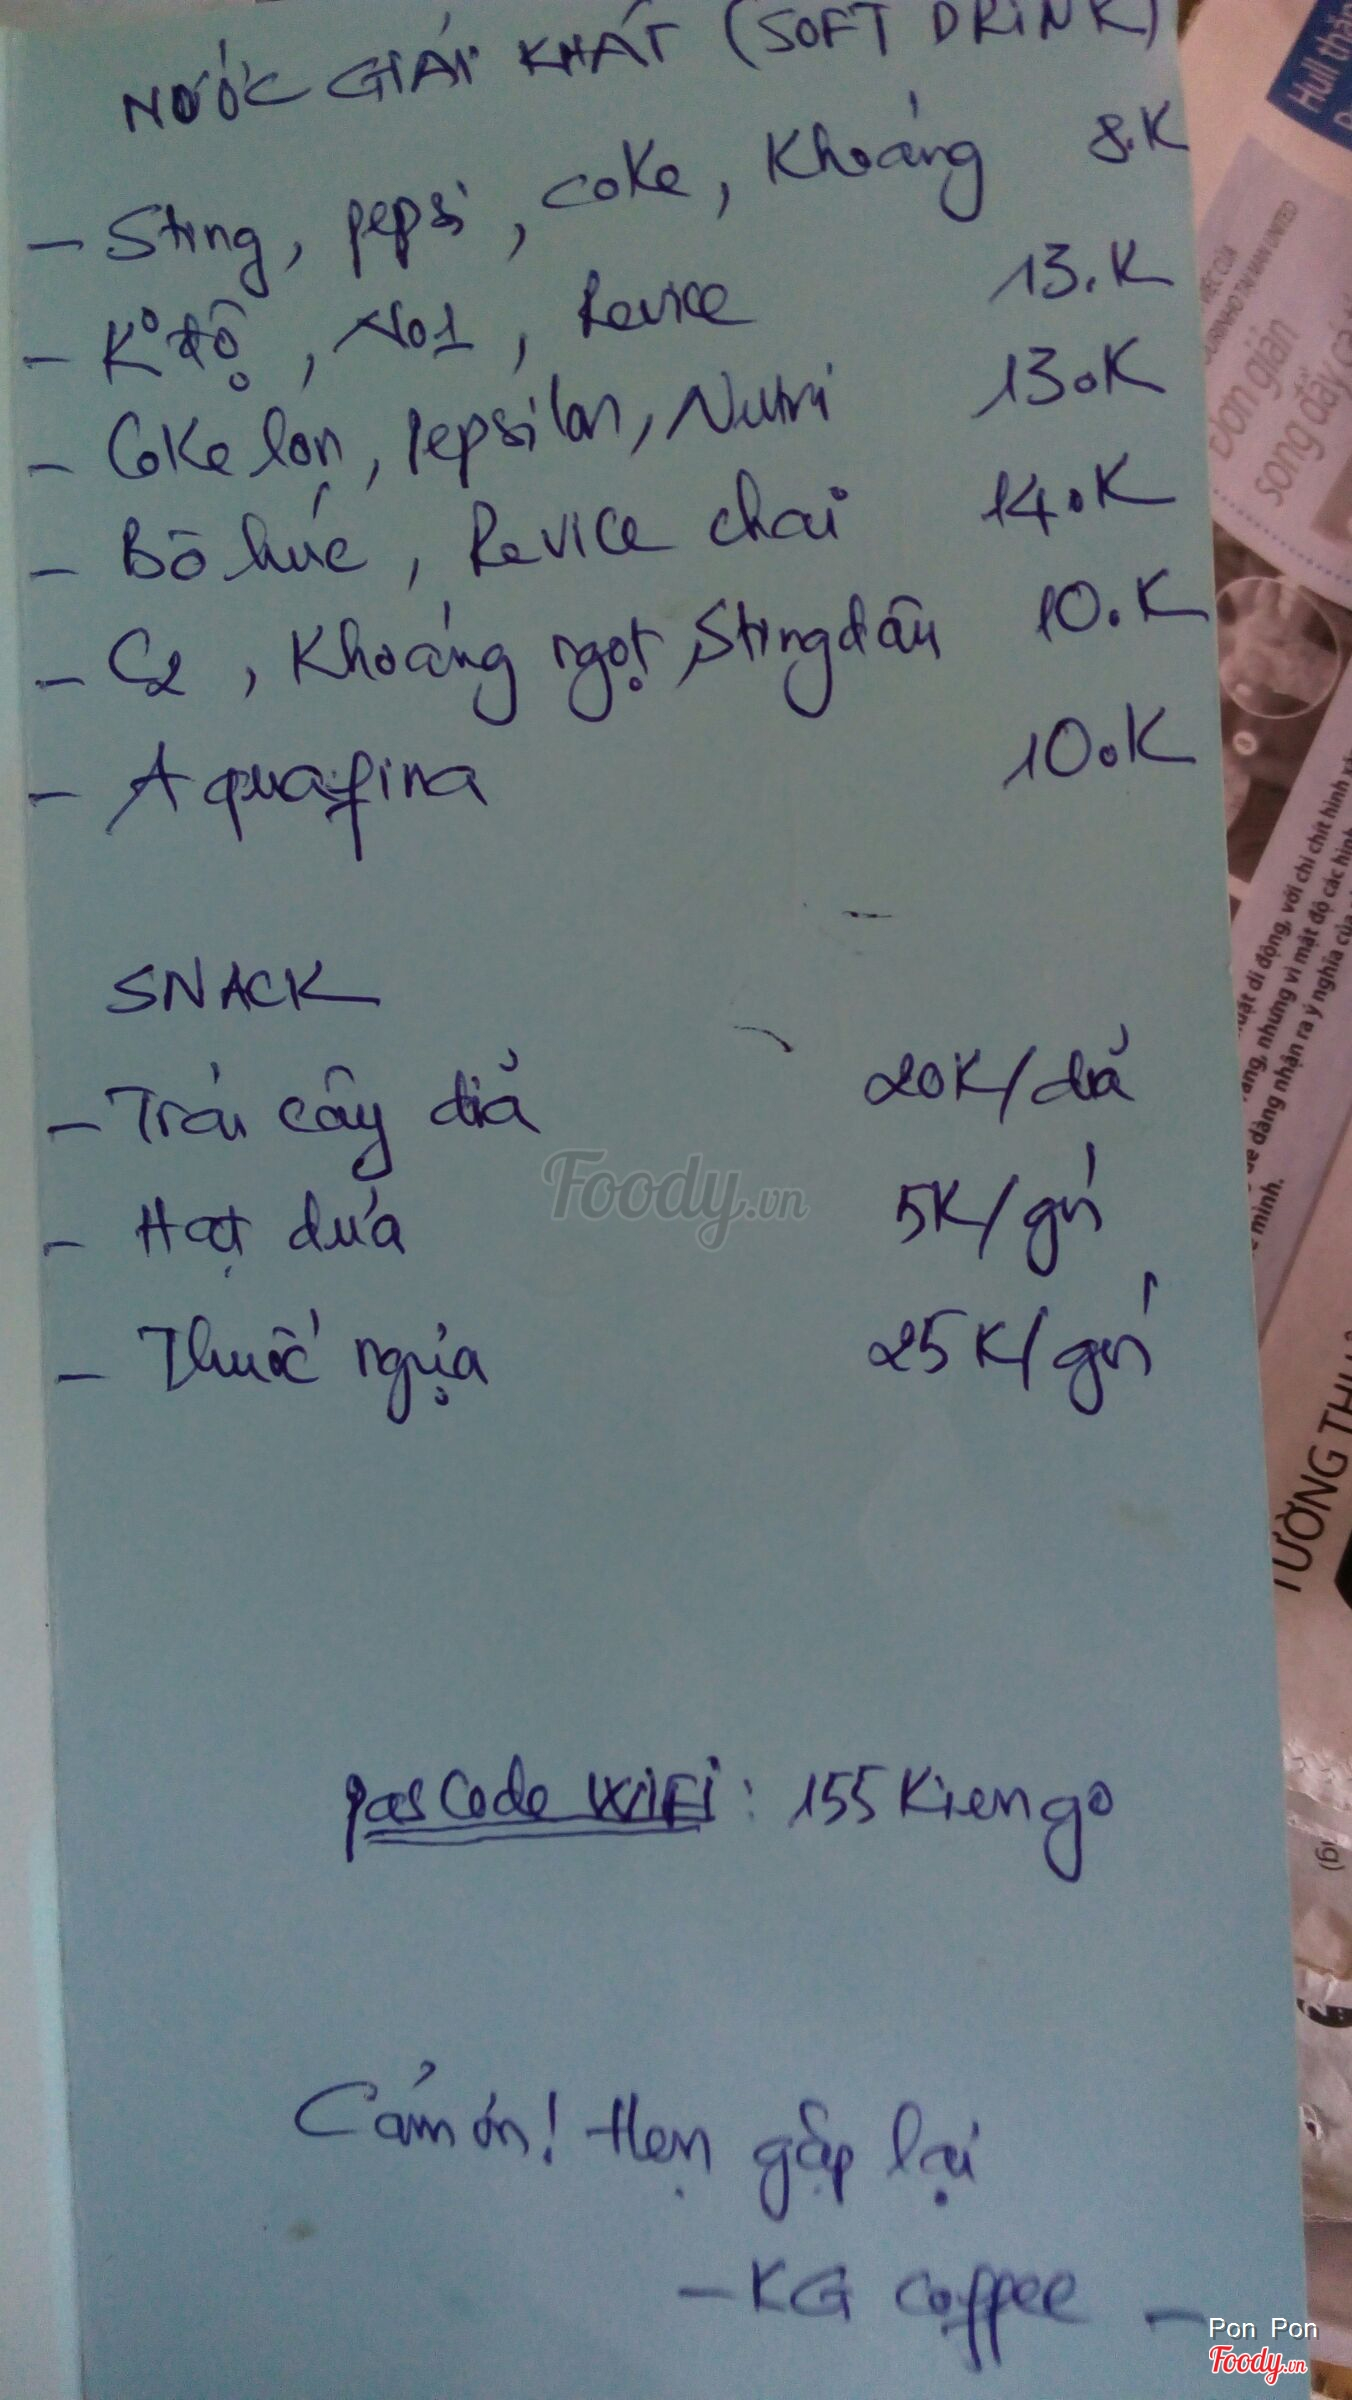 NƯỚC GIẢI KHÁT (SOFT DRINK)
- Sting, pepsi, coke, Khoáng 8.K
- K° độ, No1, Revice 13.K
- Coke lon, pepsi lon, Nutri 13.K
- Bò húc, Revice chai 14.K
- C2, Khoáng ngọt, Sting dâu 10.K
- Aquafina 10.K
SNACK
- Trái cây dĩa 20K/dĩa
- Hạt dưa 5K/gói
- Thuốc ngựa 25K/gói
pascode WIFI: 155Kiengo
Cảm ơn! Hẹn gặp lại
- KG coffee -
Foody.vn
Pon Pon
Foody.vn
Hull thắn
VIỆC CỦA
MOURINHO TẠI MAN UNITED
Đơn giản
song đầy cá t
uật di động, với chi chít hình xă
ràng, nhưng vì mật độ các hình
dễ dàng nhận ra ý nghĩa của
mình.
TƯỜNG THU